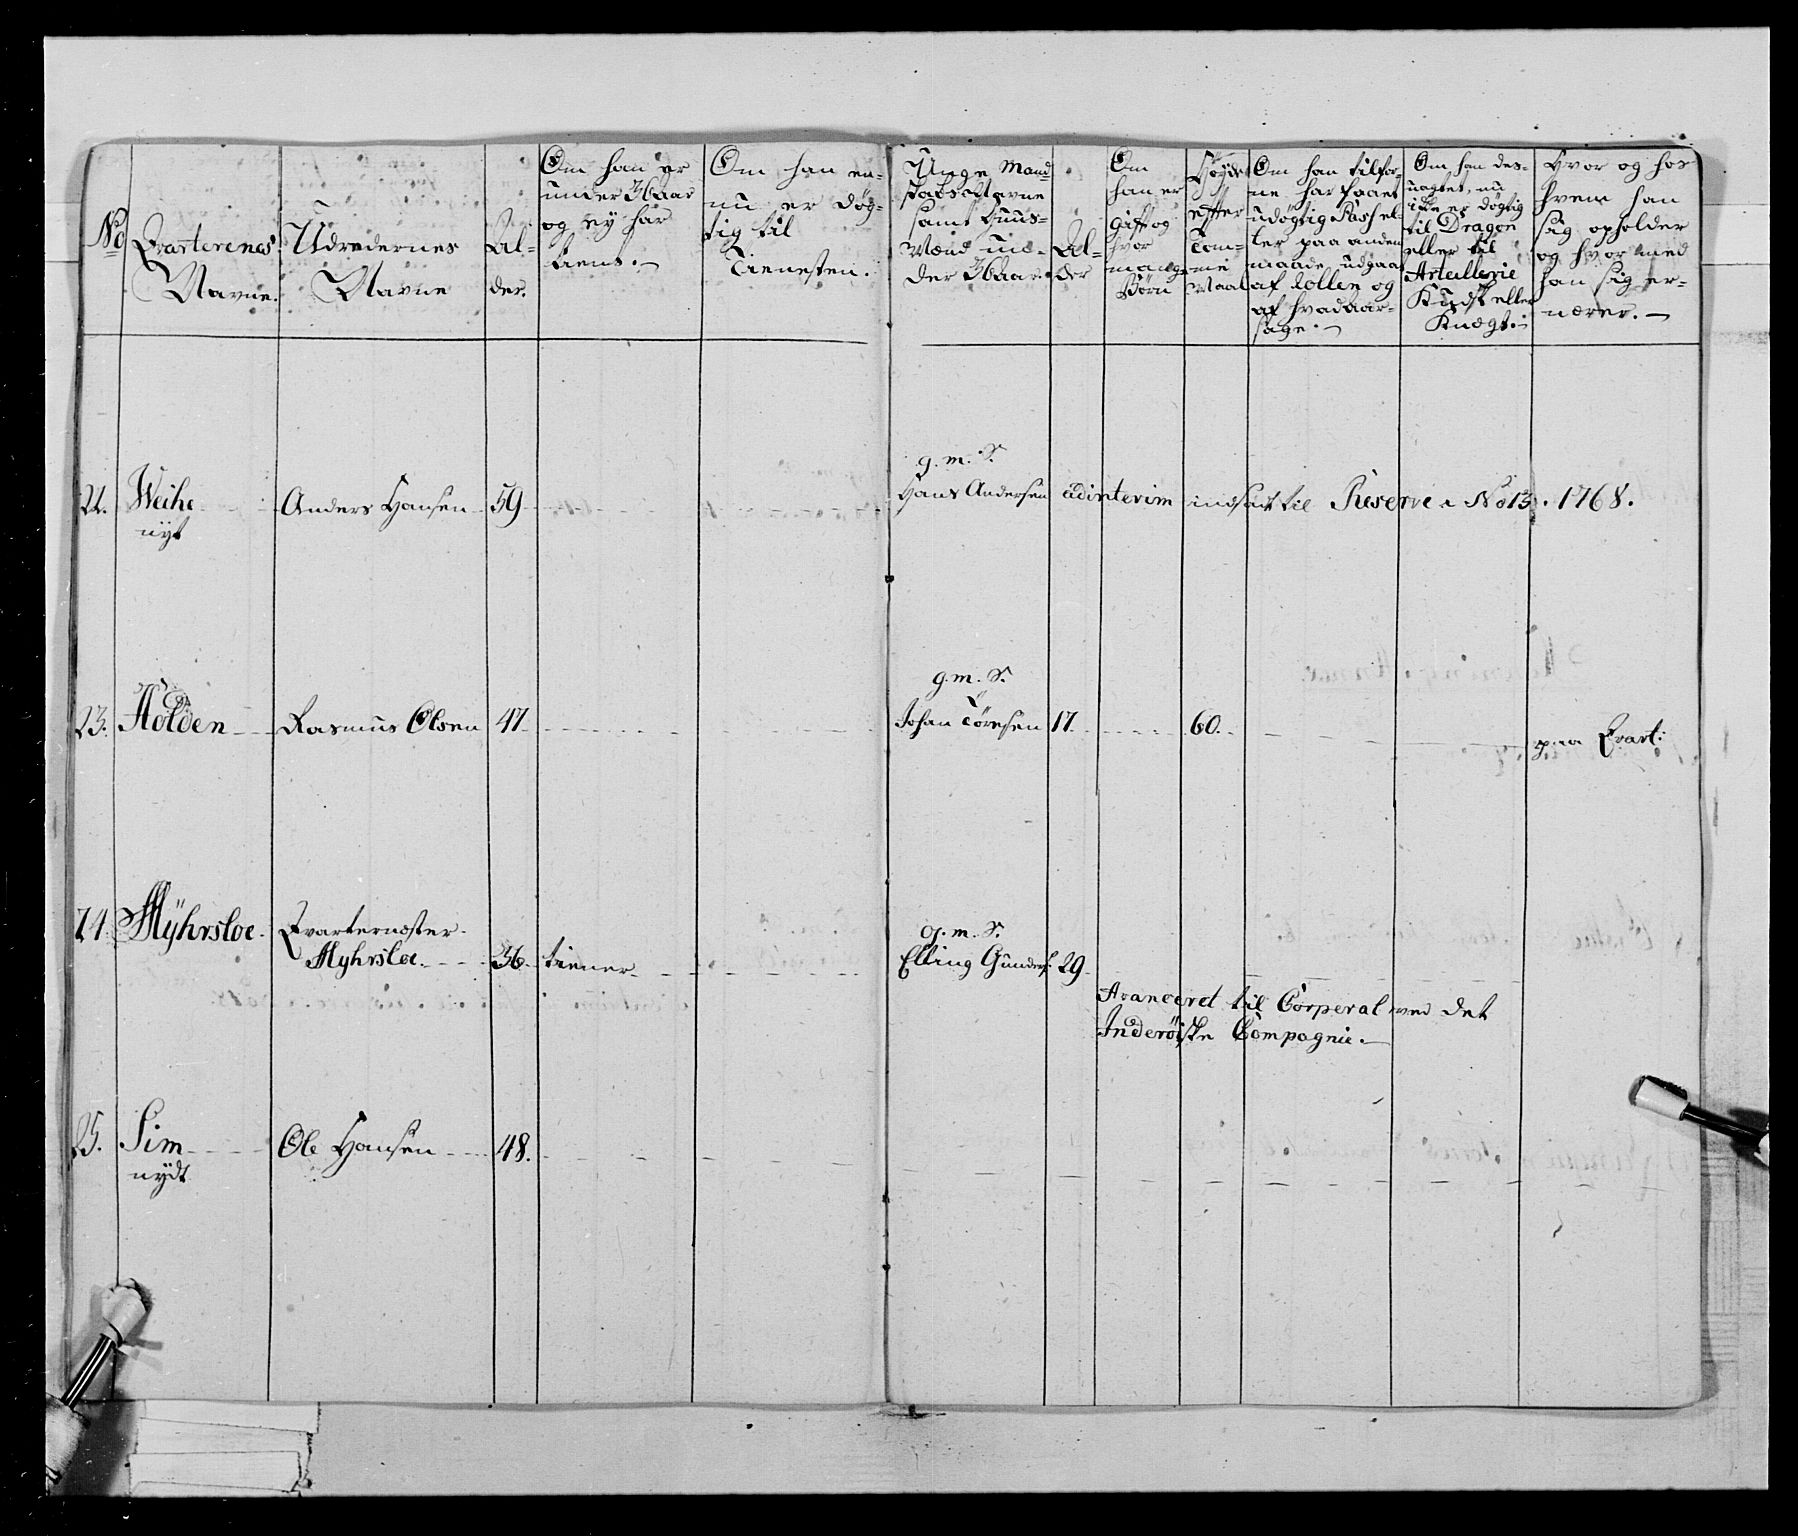 No
Qvarterenes
Navne.
Udredernes
Navne
Al-
der.
Om han er
under 36 aar
og ey har
tient. —
Om han en-
nu er døg-
tig til
Tienesten.
Unge Mand
skabs Navne
samt Huus-
Mænd un-
der 36 aar.
Al-
der
Om
han er
gift og
hvor
mange
Børn
Høyde
efter
Tom-
me
Maal
Om han tilfor-
ne har faaet
udøgtig Pas hel-
ler paa anden
maade udgaaet
af Rollen og
af hvad aar-
sage. —
Om han des-
uagtet, nu
ikke er døgtig
til Dragon
eller til
Artellerie
Kudsk eller
Knægt. —
Hvor og hos
hvem han
sig opholder
og hvor med
han sig er-
nærer. —
22. Weihe Anders Hansen 59
nyt
g. m. S.
Hans Andersen ad interim indsadt til Reserve No 13. 1768.
23. Holden Rasmus Olsen 47
g. m. S.
Johan Tøresen 17 60. paa Qvart:
24. Myhrsloe. Qvartermæster
Myhrsloe. 36 tiener
g. m. S.
Elling Gunders. 29
Avanceret til Corperal ved det
Inderøiske Compagnie. —
25. Sim Ole Hansen 48.
nydt